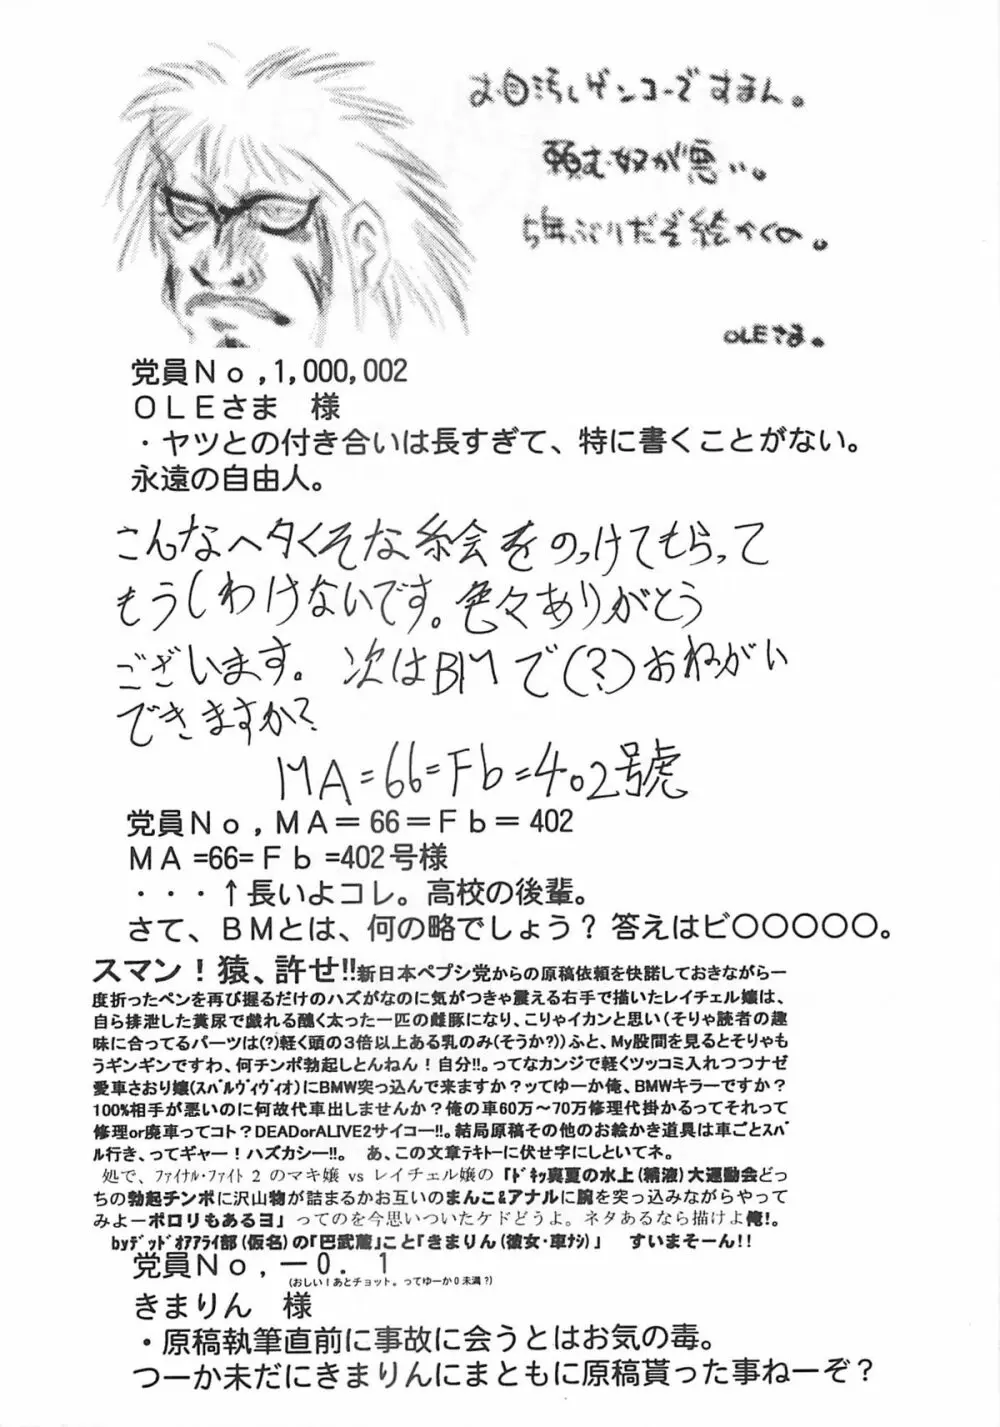 お目汚しゲンコーですまん。
頼む奴が悪い。
5年ぶりだぞ絵かくの。
OLEさま。
党員No,1,000,002
OLEさま 様
・ヤツとの付き合いは長すぎて、特に書くことがない。
永遠の自由人。
こんなヘタくそな絵をのっけてもらって
もうしわけないです。色々ありがとう
ございます。次はBMで(?)おねがい
できますか?
MA=66=Fb=402号虎
党員No,MA=66=Fb=402
MA=66=Fb=402号様
・・・↑長いよコレ。高校の後輩。
さて、BMとは、何の略でしょう?答えはビ〇〇〇〇〇。
スマン!猿、許せ!!新日本ペプシ党からの原稿依頼を快諾しておきながら一
度折ったペンを再び握るだけのハズがなのに気がつきゃ震える右手で描いたレイチェル嬢は、
自ら排泄した糞尿で戯れる醜く太った一匹の雌豚になり、こりゃイカンと思い(そりゃ読者の趣
味に合ってるパーツは(?)軽く頭の3倍以上ある乳のみ(そうか?))ふと、My股間を見るとそりゃも
うギンギンですわ、何チンポ勃起しとんねん!自分!!。ってなカンジで軽くツッコミ入れつつナゼ
愛車さおり嬢(スバルヴィヴィオ)にBMW突っ込んで来ますか?ッてゆーか俺、BMWキラーですか?
100%相手が悪いのに何故代車出しませんか?俺の車60万〜70万修理代掛かるってそれって
修理or廃車ってコト?DEADorALIVE2サイコー!!。結局原稿その他のお絵かき道具は車ごとスバ
ル行き、ってギャー!ハズカシー!!。 あ、この文章テキトーに伏せ字にしといてネ。
処で、ファイナル・ファイト2のマキ嬢 vs レイチェル嬢の「ドキッ真夏の水上(精液)大運動会どっ
ちの勃起チンポに沢山物が詰まるかお互いのまんこ&アナルに腕を突っ込みながらやって
みよーポロリもあるヨ」ってのを今思いついたケドどうよ。ネタあるなら描けよ俺!。
byデッドオアアライ部(仮名)の「巴武蔵」こと「きまりん(彼女・車ナシ)」 すいまそーん!!
党員No,ー0.1
(おしい!あとチョット。ってゆーか0未満?)
きまりん 様
・原稿執筆直前に事故に会うとはお気の毒。
つーか未だにきまりんにまともに原稿貰った事ねーぞ?